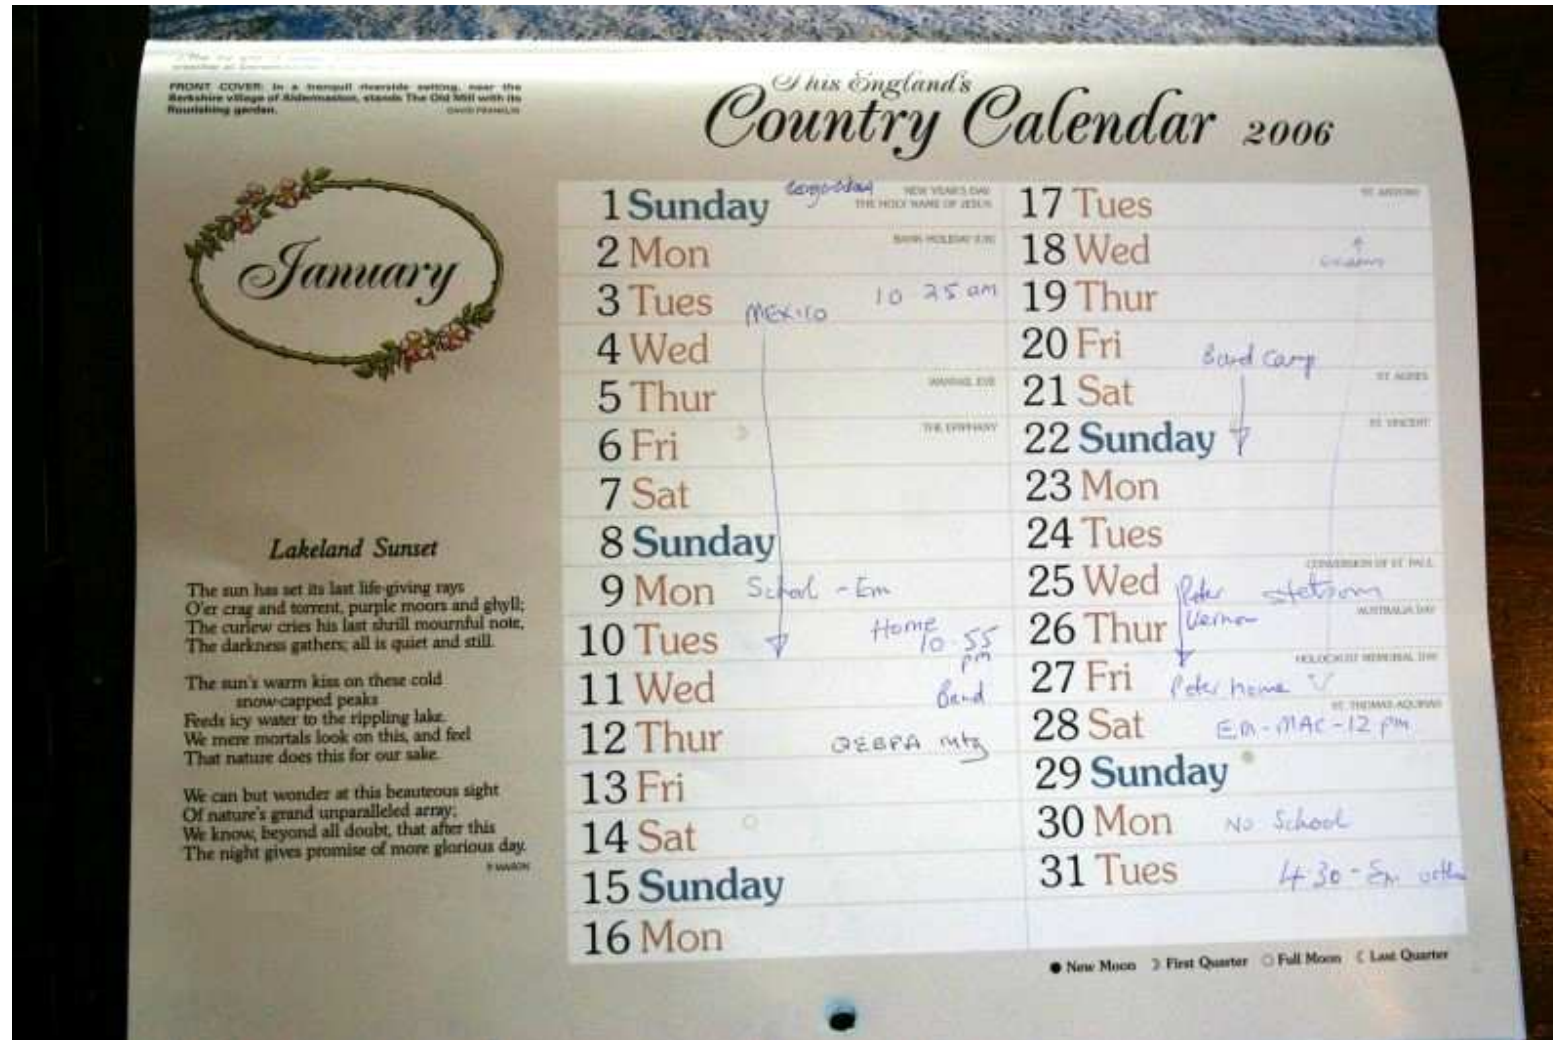 FRONT COVER: In a tranquil riverside setting, near the
Berkshire village of Aldermaston, stands The Old Mill with its
flourishing garden.
DAVID FRANKLIN
This England's
Country Calendar 2006
January
Lakeland Sunset
The sun has set its last life-giving rays
O'er crag and torrent, purple moors and ghyll;
The curlew cries his last shrill mournful note,
The darkness gathers; all is quiet and still.
The sun's warm kiss on these cold
snow-capped peaks
Feeds icy water to the rippling lake.
We mere mortals look on this, and feel
That nature does this for our sake.
We can but wonder at this beauteous sight
Of nature's grand unparalleled array;
We know, beyond all doubt, that after this
The night gives promise of more glorious day.
1 Sunday NEW YEAR'S DAY
THE HOLY NAME OF JESUS
2 Mon BANK HOLIDAY
3 Tues MEXICO 10 25 am
4 Wed
5 Thur WASSAIL EVE
6 Fri THE EPIPHANY
7 Sat
8 Sunday
9 Mon School - Em
10 Tues Home
10.55
pm
11 Wed Band
12 Thur mtg
13 Fri
14 Sat
15 Sunday
16 Mon
17 Tues ST ANTONY
18 Wed
19 Thur
20 Fri Band Camp
21 Sat ST AGNES
22 Sunday ST VINCENT
23 Mon
24 Tues
25 Wed CONVERSION OF ST PAUL
Peter
26 Thur Vernon AUSTRALIA DAY
27 Fri HOLOCAUST MEMORIAL DAY
Peter home
28 Sat ST THOMAS AQUINAS
Em - MAC - 12 pm
29 Sunday
30 Mon No School
31 Tues 4 30 - Em
New Moon First Quarter Full Moon Last Quarter